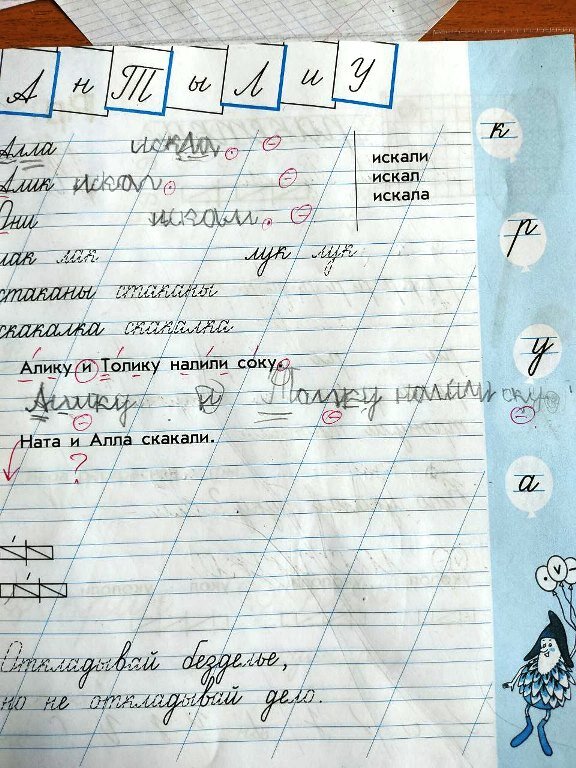 А н Т ы Л и У
к
Алла искала. искали
Алик искал. искал
Они искали. искала
р
лак лак лук лук
стаканы стаканы
скакалка скакалка
у
Алику и Толику налили соку.
Алику и Толику налили
Ната и Алла скакали.
?
а
Откладывай безделье,
но не откладывай дело.